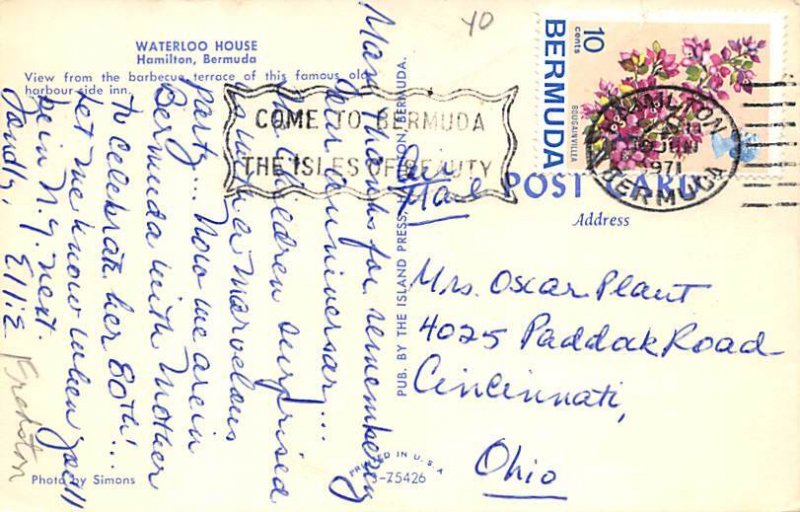 WATERLOO HOUSE
Hamilton, Bermuda
View from the barbecue terrace of this famous old
harbour-side inn.
Many thanks for remembering
our anniversary...
The children surprised
us with a marvelous
party... Now we are in
Bermuda with Mother
to celebrate her 80th!...
Let me know when you'll
be in N.Y. next.
Fondly,
Ellie
Photo by Simons
PUB. BY THE ISLAND PRESS, HAMILTON BERMUDA.
PRINTED IN U.S.A.
-75426
40
COME TO BERMUDA
THE ISLES OF BEAUTY
10
cents
BOUGAINVILLEA
BERMUDA
HAMILTON
JUN
1971
BERMUDA
POST CARD
Air
Mail
Address
Mrs. Oscar Plant
4025 Paddak Road
Cincinnati,
Ohio